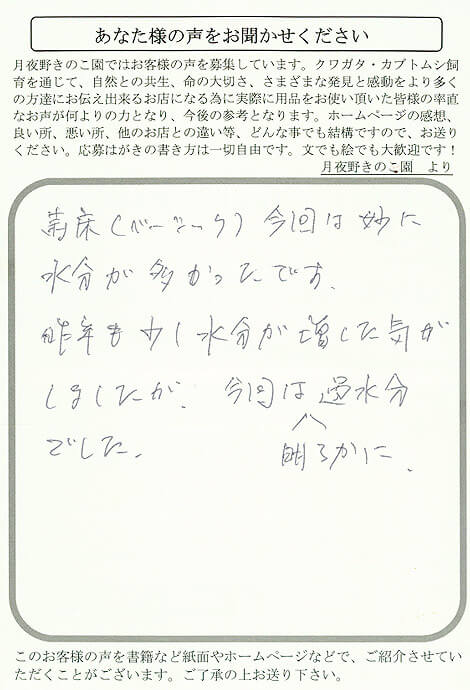 あなた様の声をお聞かせください
月夜野きのこ園ではお客様の声を募集しています。クワガタ・カブトムシ飼
育を通じて、自然との共生、命の大切さ、さまざまな発見と感動をより多く
の方達にお伝え出来るお店になる為に実際に用品をお使い頂いた皆様の率直
なお声が何よりの力となり、今後の参考となります。ホームページの感想、
良い所、悪い所、他のお店との違い等、どんな事でも結構ですので、お送り
ください。応募はがきの書き方は一切自由です。文でも絵でも大歓迎です！
月夜野きのこ園　より
菌床（ベーシック）今回は妙に
水分が多かったです.
昨年も少し水分が増した気が
しましたが、今回は過水分
でした.
明らかに.
このお客様の声を書籍など紙面やホームページなどで、ご紹介させてい
ただくことがございます。ご了承の上お送り下さい。